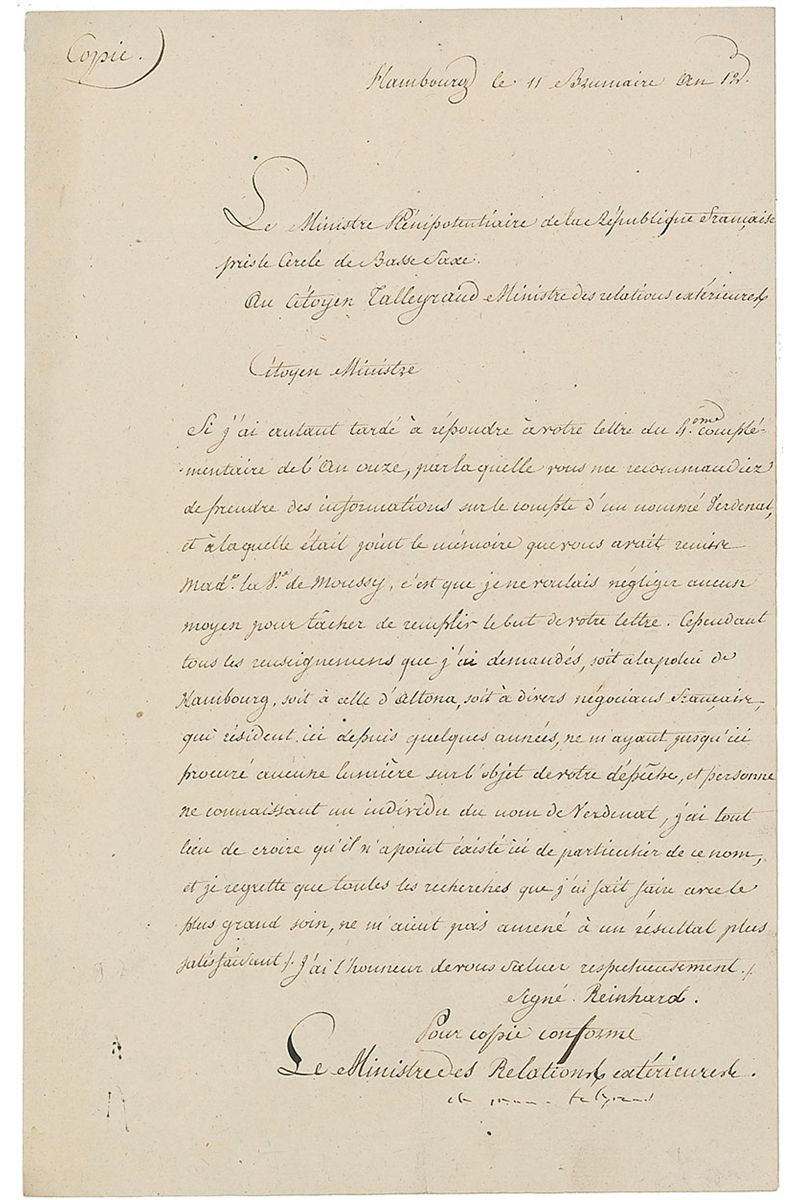 Copie.
Hambourg le 11 Brumaire An 12.
Le Ministre Plénipotentiaire de la République Française
près le Cercle de Basse Saxe.
Au Citoyen Talleyrand Ministre des relations extérieures
Citoyen Ministre
Si j'ai autant tardé à répondre à votre lettre du 4.eme complé-
mentaire de l'An onze, par laquelle vous me recommandiez
de prendre des informations sur le compte d'un nommé Verdenat,
et à laquelle était joint le mémoire que vous avait remise
Mad.e la V.e de Moussy, c'est que je ne voulais négliger aucun
moyen pour tacher de remplir le but de votre lettre. Cependant
tous les renseignemens que j'ai demandés, soit à la police de
Hambourg, soit à celle d'Altona, soit à divers négocians français,
qui résident ici depuis quelques années, ne m'ayant jusqu'ici
procuré aucune lumière sur l'objet de votre dépêche, et personne
ne connaissant un individu du nom de Verdenat, j'ai tout
lieu de croire qu'il n'a point éxisté ici de particulier de ce nom,
et je regrette que toutes les recherches que j'ai fait faire avec le
plus grand soin, ne m'aient pas amené à un résultat plus
satisfaisant /. J'ai l'honneur de vous saluer respectueusement. /.
Signé. Reinhard.
Pour copie conforme
Le Ministre des Relations extérieures.